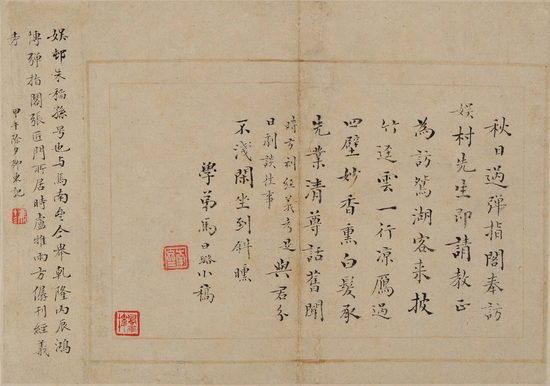 秋日過彈指閣奉訪
娛村先生即請教正
為訪鴛湖客来披
竹逕雲一行涼雁過
四壁妙香熏白髮承
先業清尊話舊聞
時方刊經義考是
日劇談往事
與君分
不淺閑坐到斜曛
學弟馬曰璐小稿
娛邨朱稻孫号也与馬南齋仝舉乾隆丙辰鴻
博彈指閣張匡門所居時盧雅雨方刊經義
考
甲午除夕柳東記